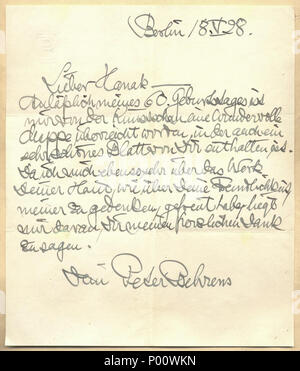 Berlin 18.V.28.
Lieber Hanak
Anläßlich meines 60. Geburtstages ist
mir von der Künstlerschaft eine wundervolle
Mappe überreicht worden, in der auch ein
sehr schönes Blatt von Dir enthalten ist.
Da ich mich ebenso sehr über das Werk
Deiner Hand, wie über Deine Freundlichkeit,
meiner zu gedenken, gefreut habe, liegt
mir daran, Dir meinen herzlichen Dank
zu sagen.
Dein Peter Behrens
alamy
a
Image ID: P00WKN
www.alamy.com